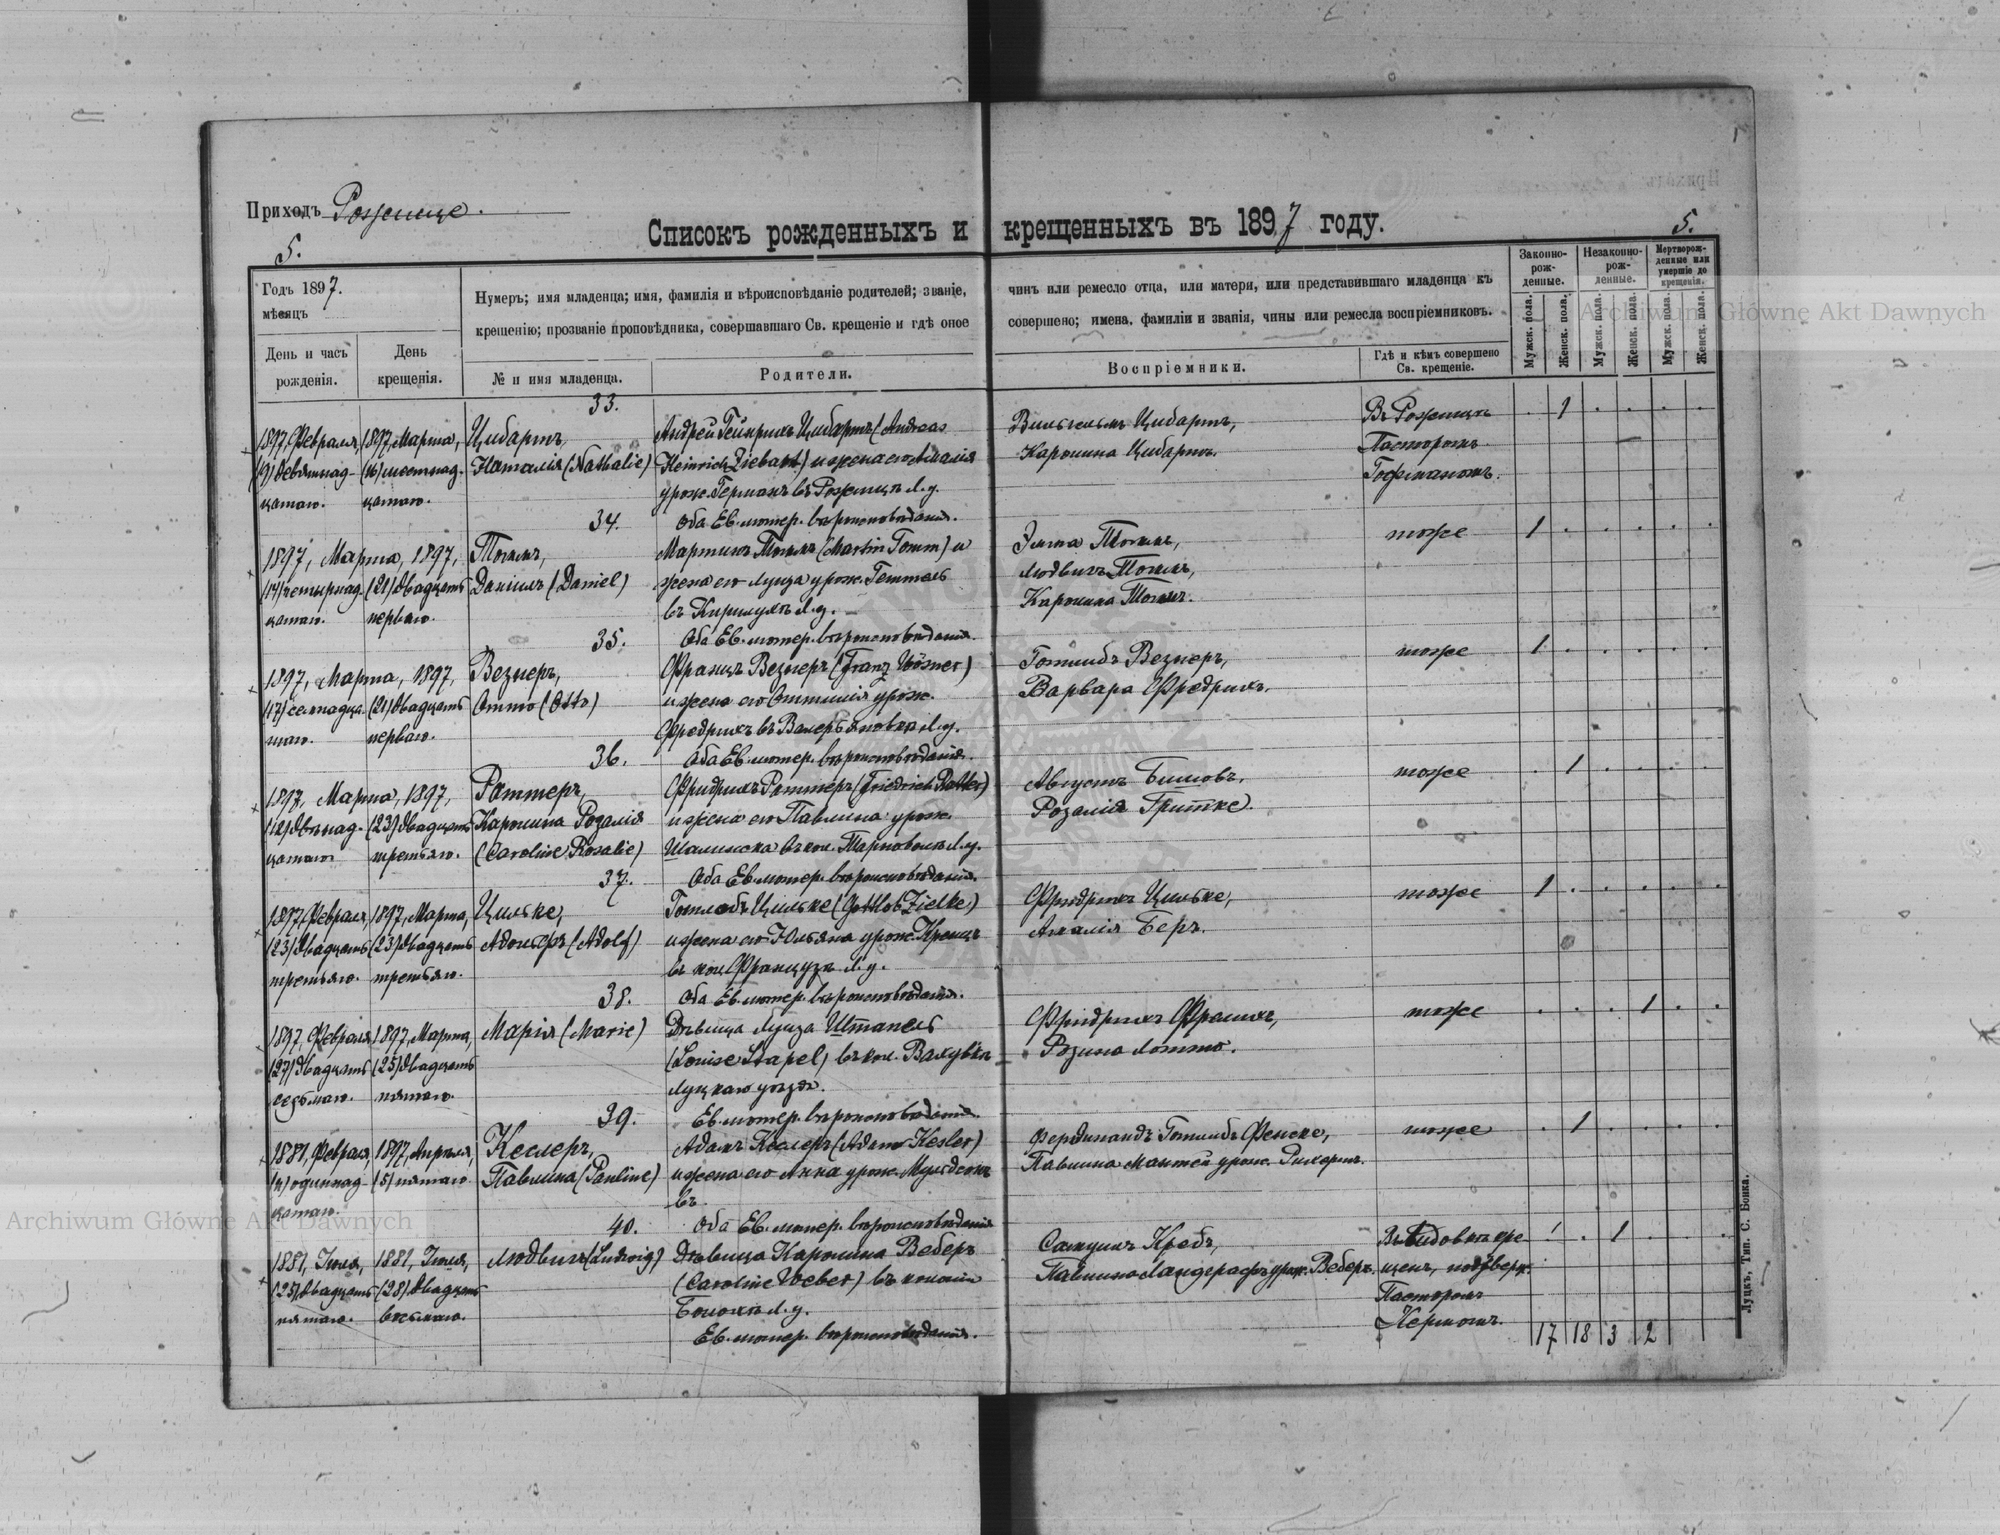 Приходъ Рожище.
Списокъ рожденныхъ и крещенныхъ въ 1897 году.
5.
5.
Годъ 1897.
мѣсяцъ
Нумеръ; имя младенца; имя, фамилія и вѣроисповѣданіе родителей; званіе,
крещенію; прозваніе проповѣдника, совершавшаго Св. крещеніе и гдѣ оное
чинъ или ремесло отца, или матери, или представившаго младенца къ
совершено; имена, фамиліи и званія, чины или ремесла воспріемниковъ.
Законно-
рож-
денные.
Незаконно-
рож-
денные.
Мертворож-
денные или
умершіе до
крещенія.
День и часъ
рожденія.
День
крещенія.
№ и имя младенца.
Родители.
Воспріемники.
Гдѣ и кѣмъ совершено
Св. крещеніе.
Мужск. пола.
Женск. пола.
Мужск. пола.
Женск. пола.
Мужск. пола.
Женск. пола.
33.
1897, Февраля, 1897, Марта, Цибартъ, Андрей Гейнрихъ Цибартъ (Andreas Вильгельмъ Цибартъ, Въ Рожищѣ 1
(19) девятнад- (16) шестнад- Наталія (Nathalie) Heinrich Ziebart) и жена его Амалія Каролина Цибартъ. Пасторомъ
цатаго. цатаго. урож. Германъ въ Рожищѣ Л. у. Гофманомъ.
34. Оба Ев. лютер. вѣроисповѣданія.
1897, Марта, 1897, Томмъ, Мартинъ Томмъ (Martin Tomm) и Эмма Томмъ, тоже 1
(14) четырнад- (21) двадцать Даніилъ (Daniel) жена его Луиза урож. Геттель Людвигъ Томмъ,
цатаго. перваго. въ Л. у. Каролина Томмъ.
35. Оба Ев. лютер. вѣроисповѣданія.
1897, Марта, 1897, Везнеръ, Францъ Везнеръ (Franz Wösner) Готлибъ Везнеръ, тоже 1
(17) семнадца- (21) двадцать Отто (Otto) и жена его Оттилія урож. Варвара Фредрихъ.
таго. перваго. Фредрихъ въ Валерьяновкѣ Л. у.
36. Оба Ев. лютер. вѣроисповѣданія.
1897, Марта, 1897, Раттеръ, Фридрихъ Раттеръ (Friedrich Ratter) Августъ тоже 1
(12) двѣнад- (23) двадцать Каролина Розалія и жена его Павлина урож. Розалія
цатаго. третьяго. (Caroline Rosalie) въ кол. Л. у.
37. Оба Ев. лютер. вѣроисповѣданія.
1897, Февраля, 1897, Марта, Цильке, Готлобъ Цильке (Gottlob Zielke) Фридрихъ Цильке, тоже 1
(23) двадцать (23) двадцать Адольфъ (Adolf) и жена его Юльяна урож. Кренцъ Амалія Беръ.
третьяго. третьяго. въ кол. Французѣ Л. у.
38. Оба Ев. лютер. вѣроисповѣданія.
1897, Февраля, 1897, Марта, Марія (Marie) Дѣвица Луиза Штапель Фридрихъ тоже 1
(27) двадцать (25) двадцать (Louise Stapel) въ кол. Розина
седьмаго. пятаго. Луцкаго уѣзда.
39. Ев. лютер. вѣроисповѣданія.
1881, Февраля, 1897, Апрѣля, Кеслеръ, Адамъ Кеслеръ (Adam Kesler) Фердинандъ Готлибъ Фенске, тоже 1
(11) одиннад- (5) пятаго Павлина (Pauline) и жена его Анна урож. Павлина Мантей урож. Рихертъ.
цатаго. въ
40. Оба Ев. лютер. вѣроисповѣданія
1881, Іюля, 1881, Іюля, Людвигъ (Ludwig) Дѣвица Каролина Веберъ Самуилъ Кребъ, 1
(25) двадцать (28) двадцать (Caroline Weber) въ колоніи Павлина Ландграфъ урож. Веберъ.
пятаго. восьмаго. Л. у. Пасторомъ
Ев. лютер. вѣроисповѣданія. Кермомъ.
17 18 3 2
Луцкъ, Тип. С. Бонка.
Archiwum Główne Akt Dawnych
Archiwum Główne Akt Dawnych